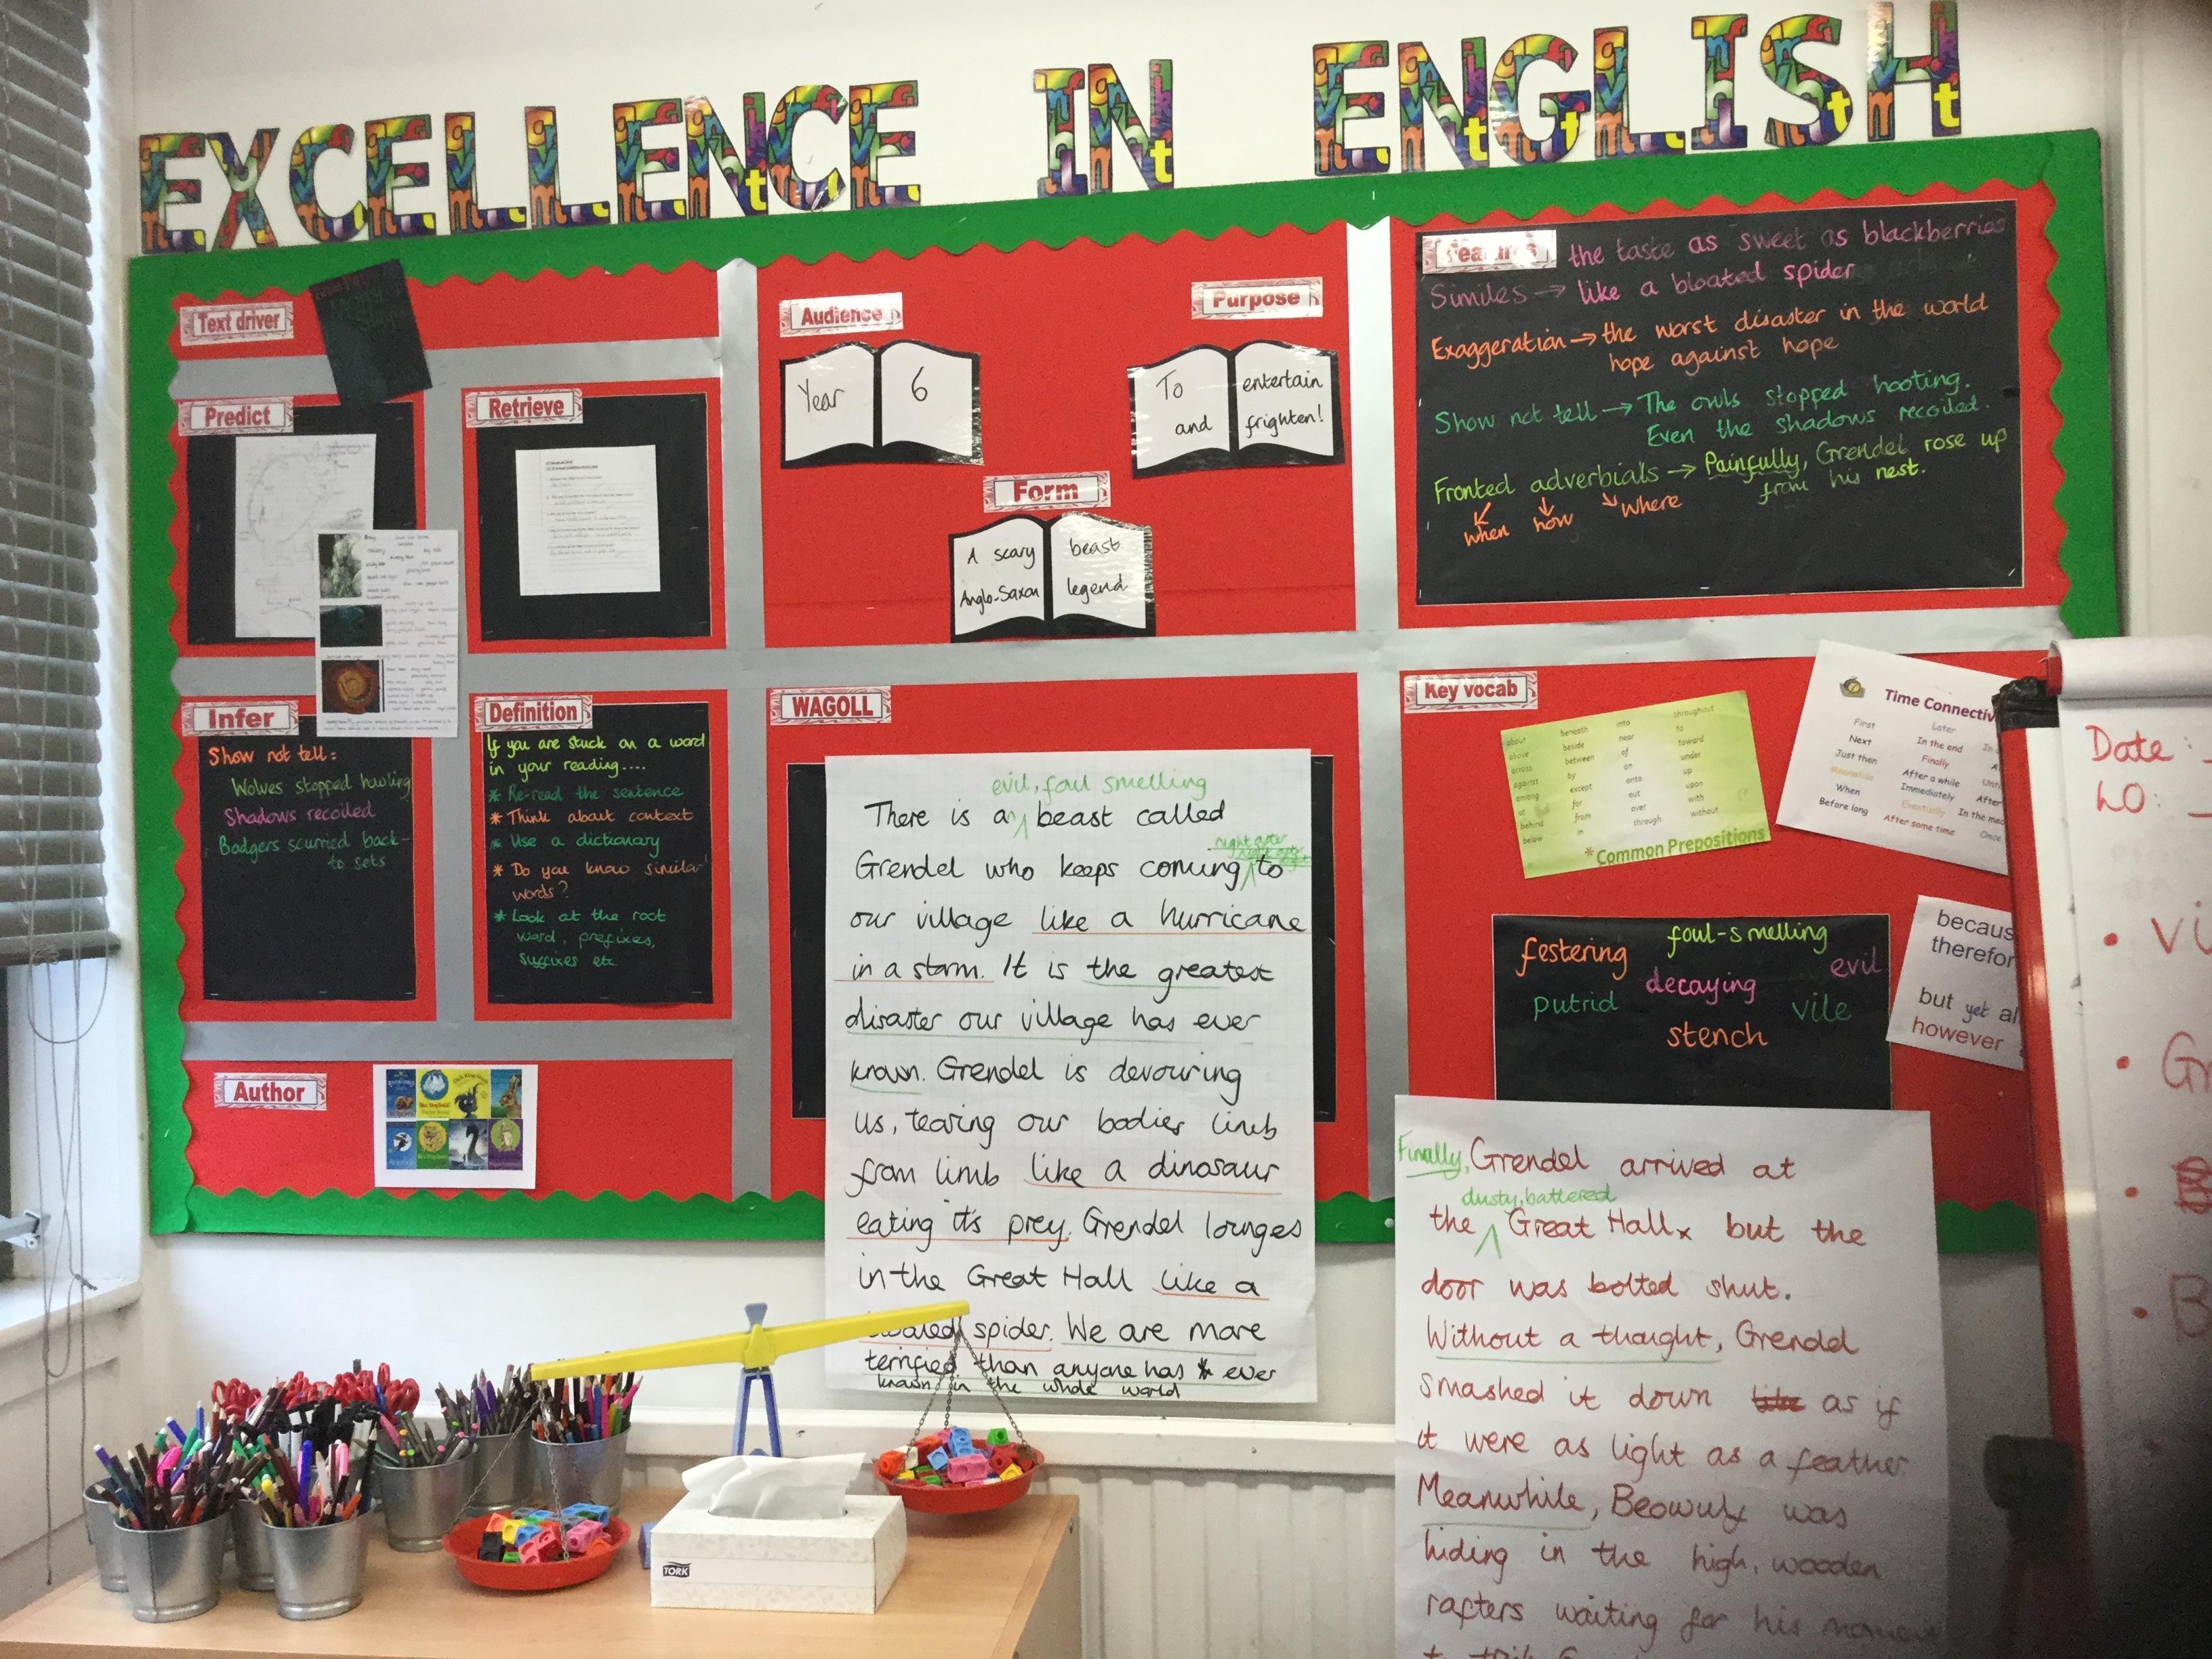 EXCELLENCE IN ENGLISH
Text driver
Predict
Retrieve
Infer
Show not tell:
Wolves stopped howling
Shadows recoiled
Badgers scurried back
to sets
Definition
If you are stuck on a word
in your reading....
* Re-read the sentence
* Think about context
* Use a dictionary
* Do you know similar
words?
* Look at the root
word, prefixes,
suffixes etc
Author
Audience
Year 6
Purpose
To entertain
and frighten!
Form
A scary beast
Anglo-Saxon legend
WAGOLL
evil, foul smelling
There is a beast called
night after
Grendel who keeps coming to
our village like a hurricane
in a storm. It is the greatest
disaster our village has ever
known. Grendel is devouring
us, tearing our bodies limb
from limb like a dinosaur
eating it's prey. Grendel lounges
in the Great Hall like a
spider. We are more
terrified than anyone has ever
known in the whole world
Features
the taste as sweet as blackberries
Similes → like a bloated spider
Exaggeration → the worst disaster in the world
hope against hope
Show not tell → The owls stopped hooting.
Even the shadows recoiled.
Fronted adverbials → Painfully, Grendel rose up
from his nest.
when how where
Key vocab
about beneath into throughout
above beside near to
across between of toward
against by on under
among except onto up
at for out upon
behind from over with
below in through without
*Common Prepositions
Time Connectiv
First Later
Next In the end
Just then Finally
Meanwhile After a while
When Immediately After
Before long Eventually In the
After some time Once
festering foul-smelling
decaying evil
putrid vile
stench
becaus
therefor
but yet al
however
Finally, Grendel arrived at
dusty, battered
the Great Hall but the
door was bolted shut.
Without a thought, Grendel
smashed it down as if
it were as light as a feather.
Meanwhile, Beowulf was
hiding in the high, wooden
rafters waiting for his moment
Date:
LO:
TORK